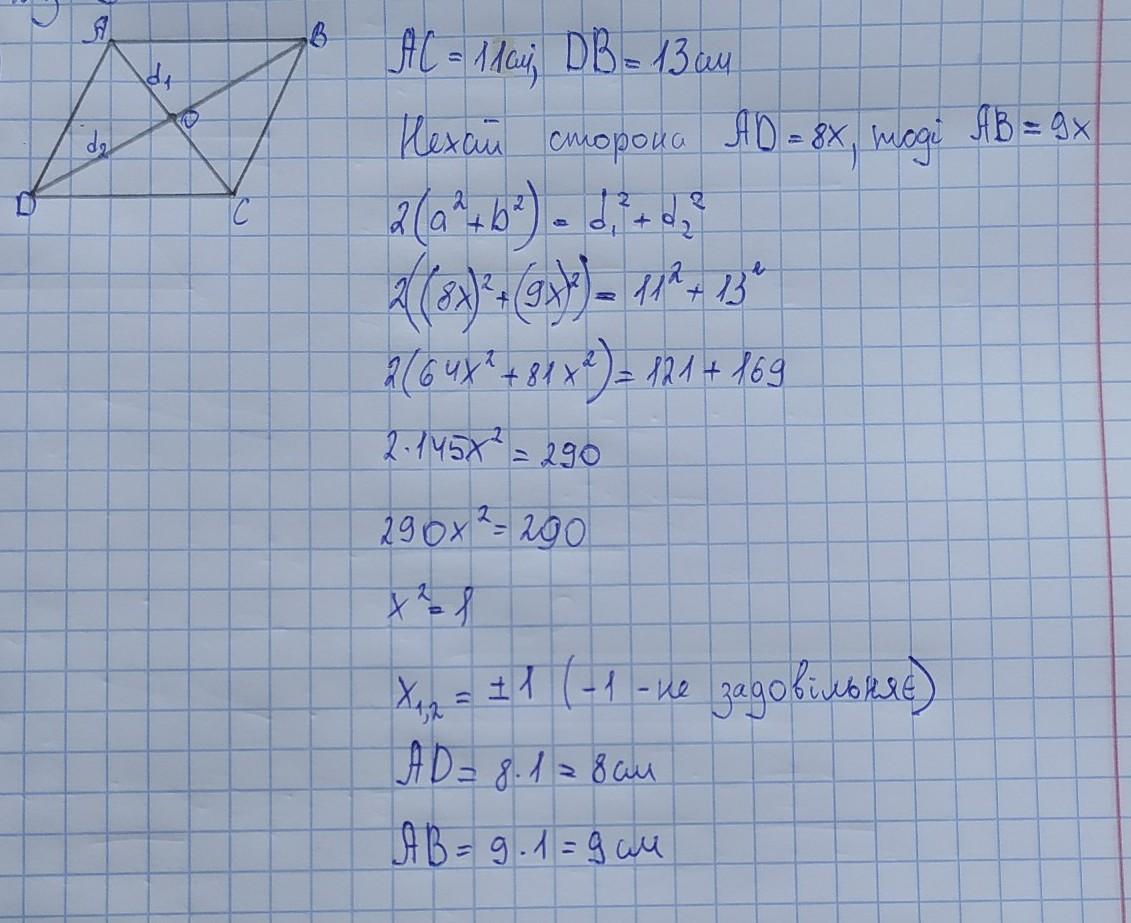 A B
d₁
O
d₂
D C
AC = 11см, DB = 13см
Нехай сторона AD = 8x, тоді AB = 9x
2(a² + b²) = d₁² + d₂²
2((8x)² + (9x)²) = 11² + 13²
2(64x² + 81x²) = 121 + 169
2·145x² = 290
290x² = 290
x² = 1
x₁,₂ = ±1 (-1 - не задовільняє)
AD = 8·1 = 8см
AB = 9·1 = 9см